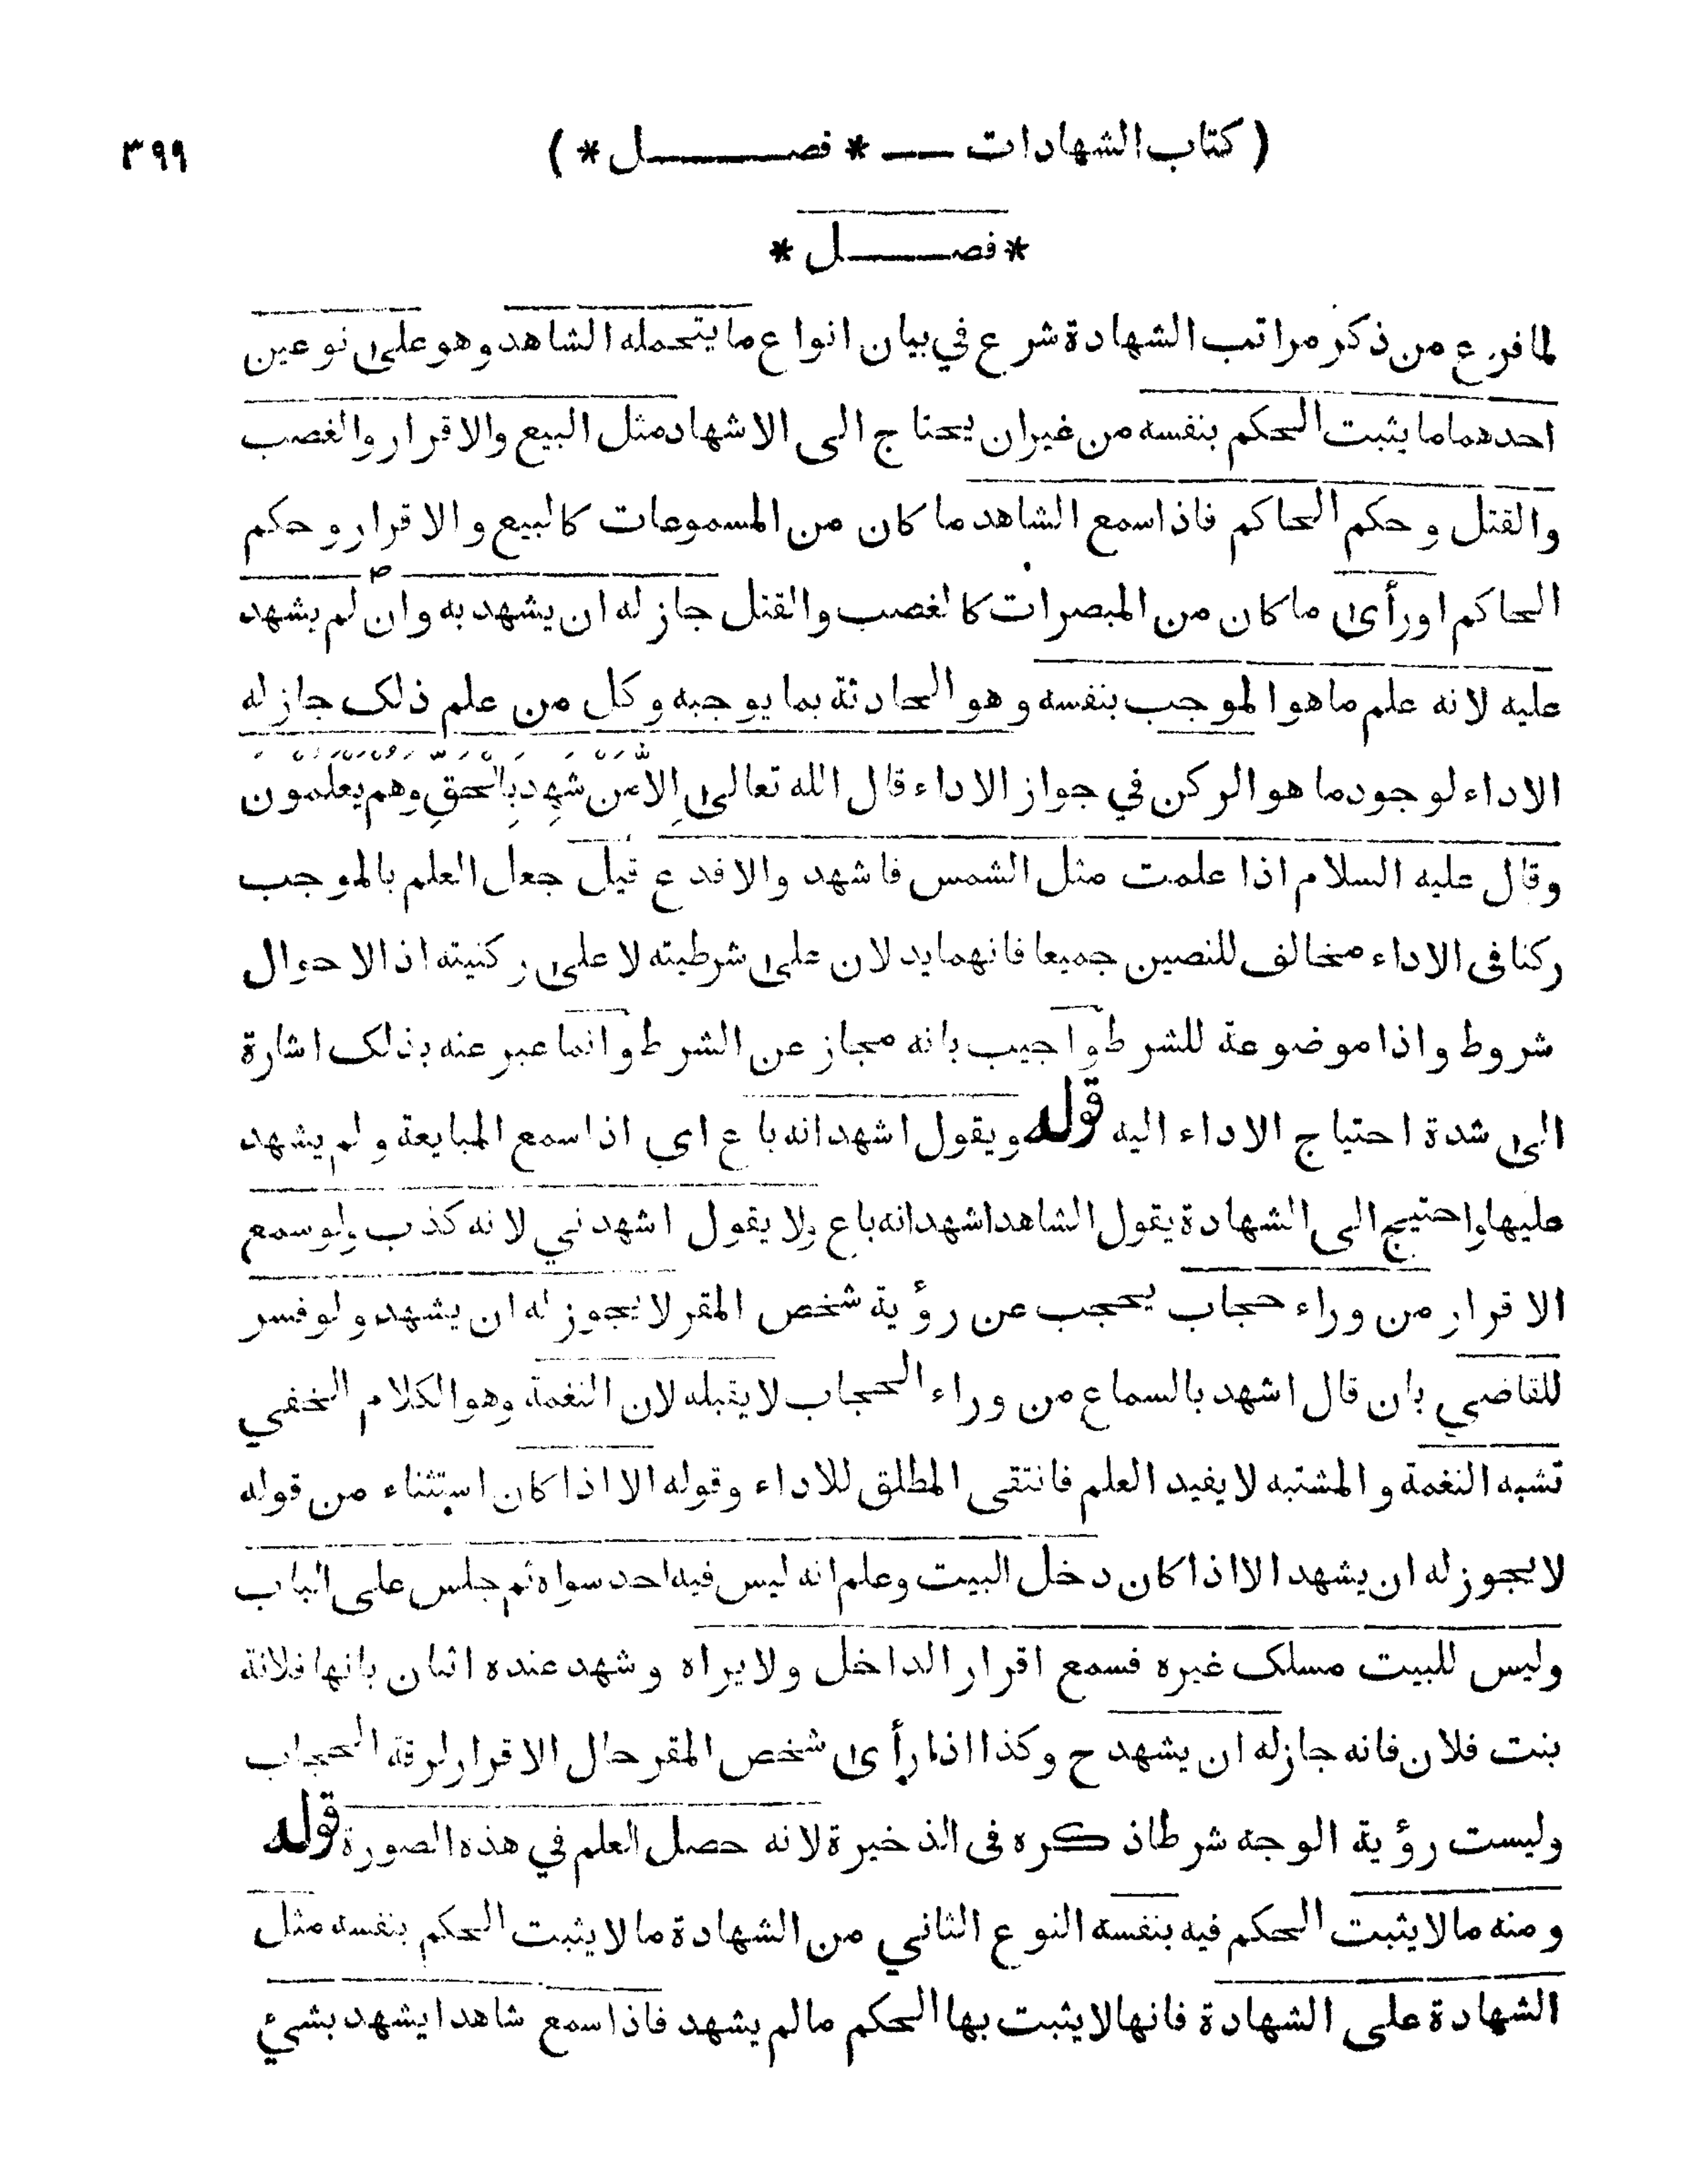 ( كتاب الشهادات — * فصـــل * ) ٣٩٩
* فصـــل *
لما فرغ من ذكر مراتب الشهادة شرع في بيان انواع ما يتحمله الشاهد وهو على نوعين
احدهما ما يثبت الحكم بنفسه من غير ان يحتاج الى الاشهاد مثل البيع والاقرار والغصب
والقتل وحكم الحاكم فاذا سمع الشاهد ما كان من المسموعات كالبيع والاقرار وحكم
الحاكم اورأى ما كان من المبصرات كالغصب والقتل جاز له ان يشهد به وان لم يشهد
عليه لانه علم ما هو الموجب بنفسه وهو الحادثة بما يوجبه وكل من علم ذلك جاز له
الاداء لوجود ما هو الركن في جواز الاداء قال الله تعالى اِلاَّ مَنْ شَهِدَ بِالْحَقِّ وَهُمْ يَعْلَمُوْنَ
وقال عليه السلام اذا علمت مثل الشمس فاشهد والا فدع قيل جعل العلم بالموجب
ركنا فى الاداء مخالف للنصين جميعا فانهما يدلان على شرطيته لا على ركنيته اذ الاحوال
شروط واذا موضوعة للشرط واجيب بانه مجاز عن الشرط وانما عبر عنه بذلك اشارة
الى شدة احتياج الاداء اليه قوله ويقول اشهد انه باع اي اذا سمع المبايعة ولم يشهد
عليها واحتيج الى الشهادة يقول الشاهد اشهد انه باع ولا يقول اشهدني لانه كذب ولو سمع
الاقرار من وراء حجاب يحجب عن رؤية شخص المقر لا يجوز له ان يشهد ولو فسر
للقاضي بان قال اشهد بالسماع من وراء الحجاب لا يقبله لان النغمة وهو الكلام الخفي
تشبه النغمة والمشتبه لا يفيد العلم فانتقى المطلق للاداء وقوله الا اذا كان استثناء من قوله
لا يجوز له ان يشهد الا اذا كان دخل البيت وعلم انه ليس فيه احد سواه ثم جلس على الباب
وليس للبيت مسلك غيره فسمع اقرار الداخل ولا يراه وشهد عنده اثنان بانها فلانة
بنت فلان فانه جاز له ان يشهد ح وكذا اذا رأى شخص المقر حال الاقرار لرقة الحجاب
وليست رؤية الوجه شرطا ذكره فى الذخيرة لانه حصل العلم في هذه الصورة قوله
ومنه ما لا يثبت الحكم فيه بنفسه النوع الثاني من الشهادة ما لا يثبت الحكم بنفسه مثل
الشهادة على الشهادة فانها لا يثبت بها الحكم ما لم يشهد فاذا سمع شاهدا يشهد بشئ